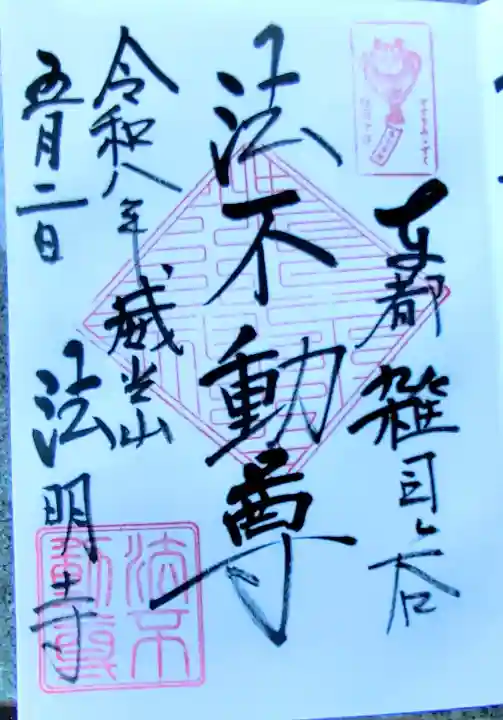 東都 雑司ヶ谷
法不動尊
威光山
法明寺
令和八年
五月二日
法不
動尊